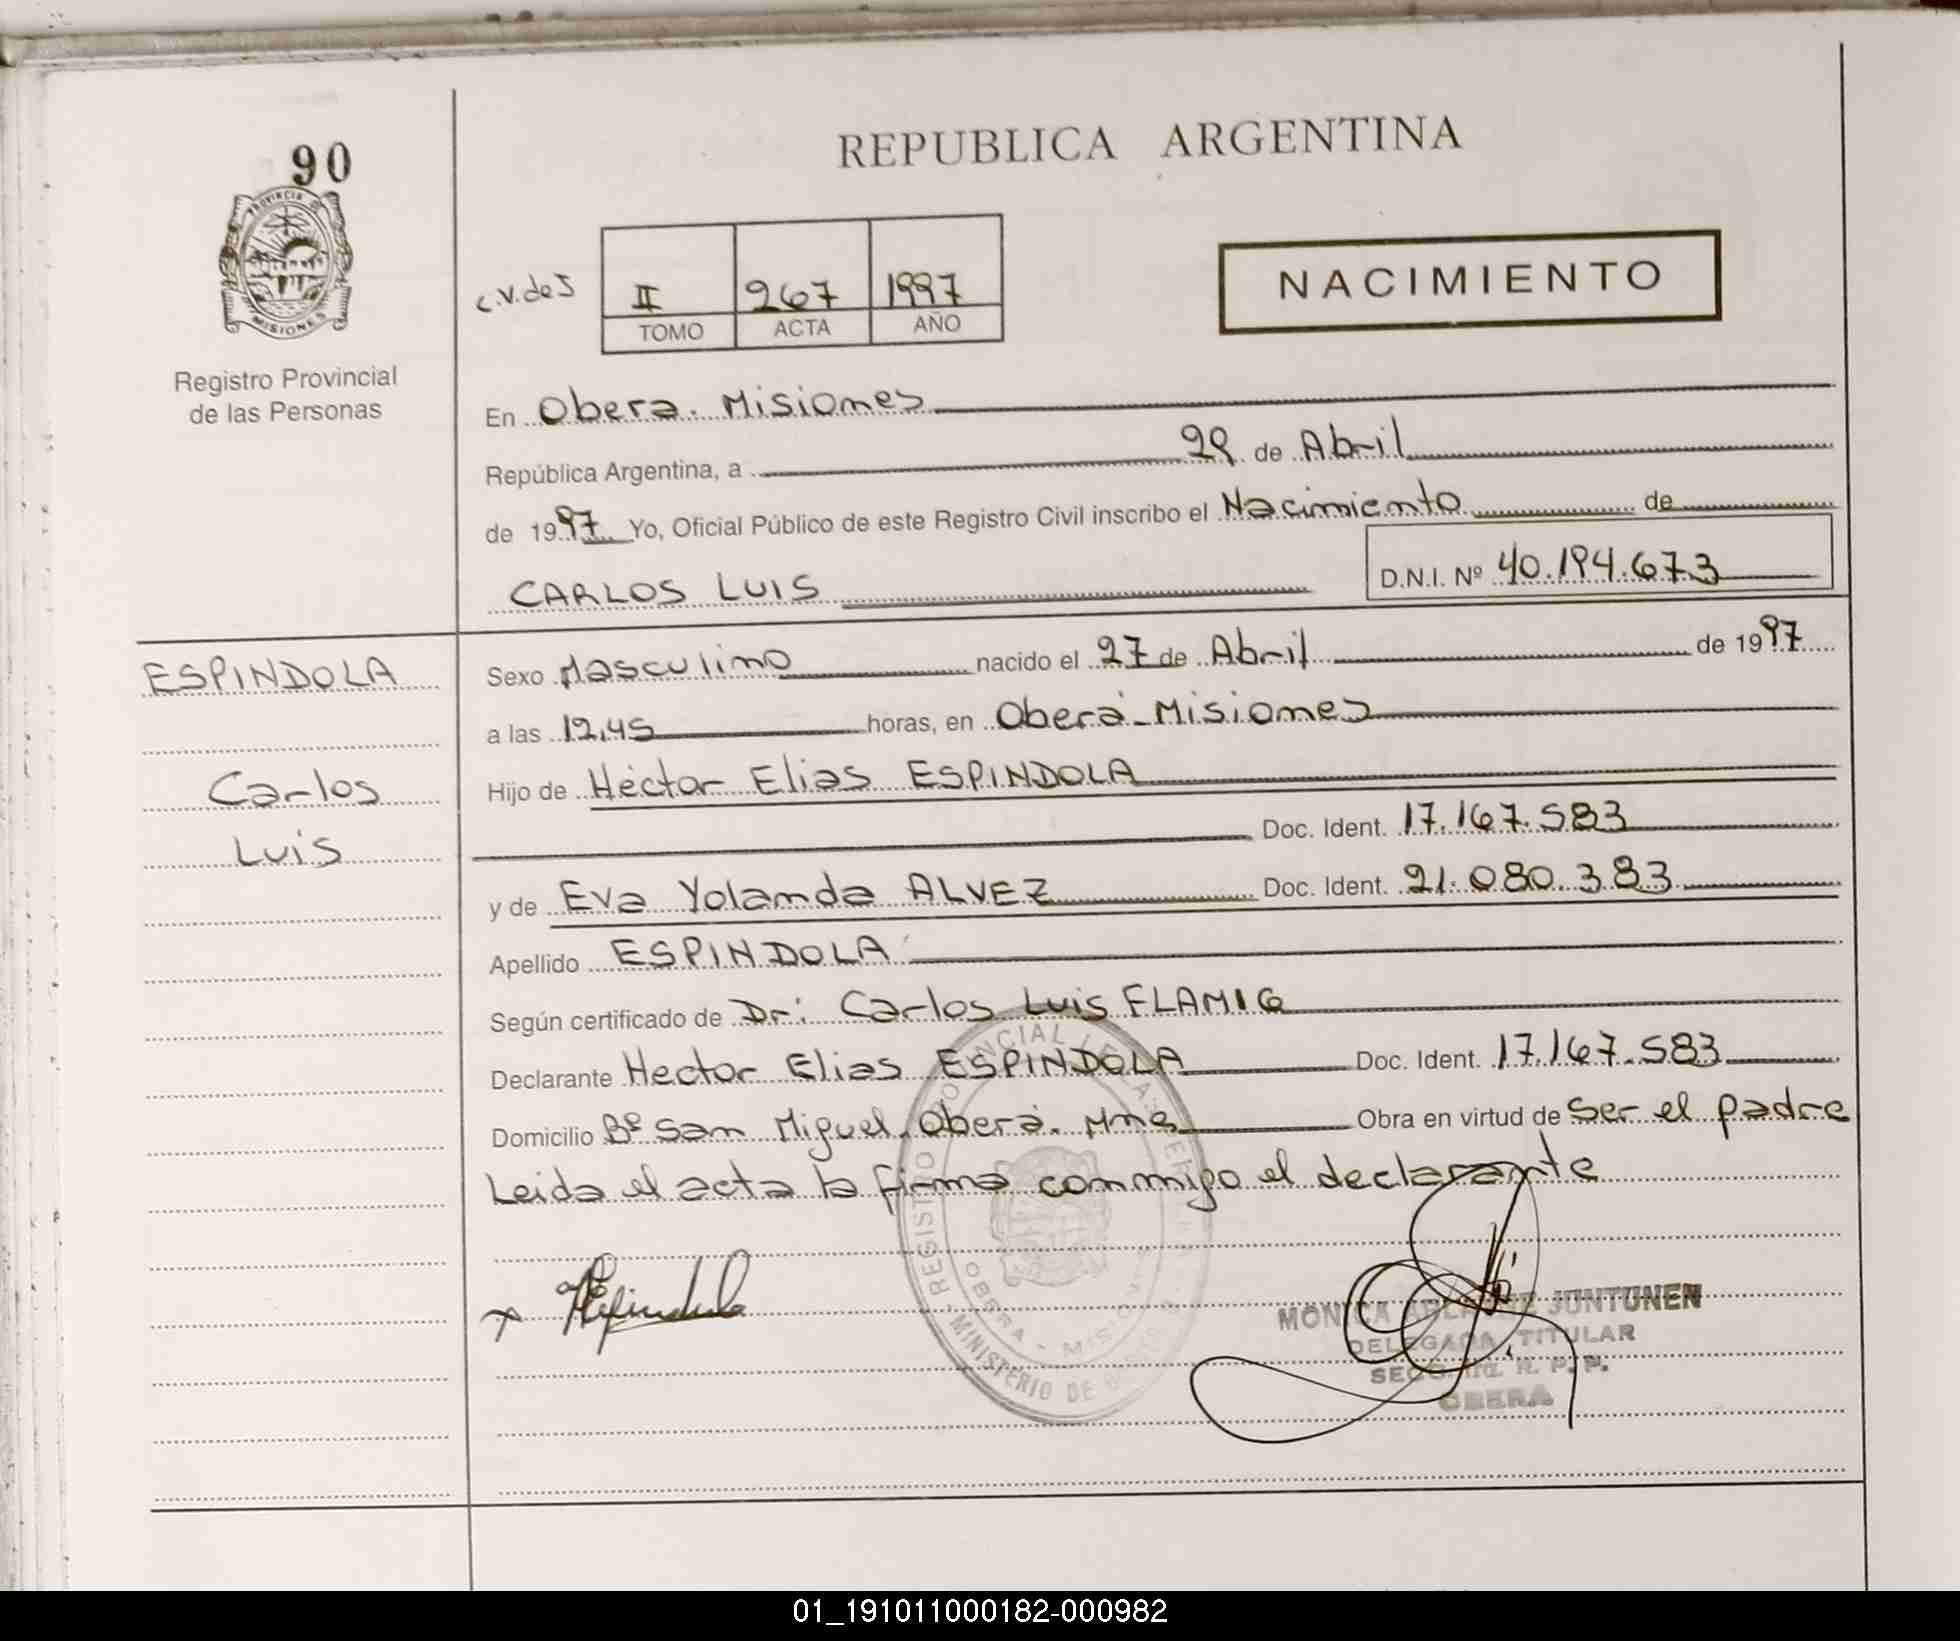 90
PROVINCIA D
MISIONES
Registro Provincial
de las Personas
REPUBLICA ARGENTINA
c.v.de J
II 267 1997
TOMO ACTA AÑO
NACIMIENTO
En Obera. Misiones
República Argentina, a 29 de Abril
de 1997 Yo, Oficial Público de este Registro Civil inscribo el Nacimiento de
CARLOS LUIS D.N.I. Nº 40.194.673
ESPINDOLA
Carlos
Luis
Sexo Masculino nacido el 27 de Abril de 1997
a las 12,45 horas, en Oberá-Misiones
Hijo de Héctor Elias ESPINDOLA
Doc. Ident. 17.167.583
y de Eva Yolanda ALVEZ Doc. Ident. 21.080.383
Apellido ESPINDOLA
Según certificado de Dr: Carlos Luis FLAMIG
Declarante Hector Elias ESPINDOLA Doc. Ident. 17.167.583
Domicilio Bº San Miguel. Oberá. Mnes Obra en virtud de Ser el padre
Leida el acta la firma conmigo el declarante
Espindola
REGISTRO PROVINCIAL DE LAS PERSONAS
MINISTERIO DE
OBERA - MISIONES
MONICA JUNTUNEN
DELEGADA TITULAR
R. P. P.
OBERA
01_191011000182-000982